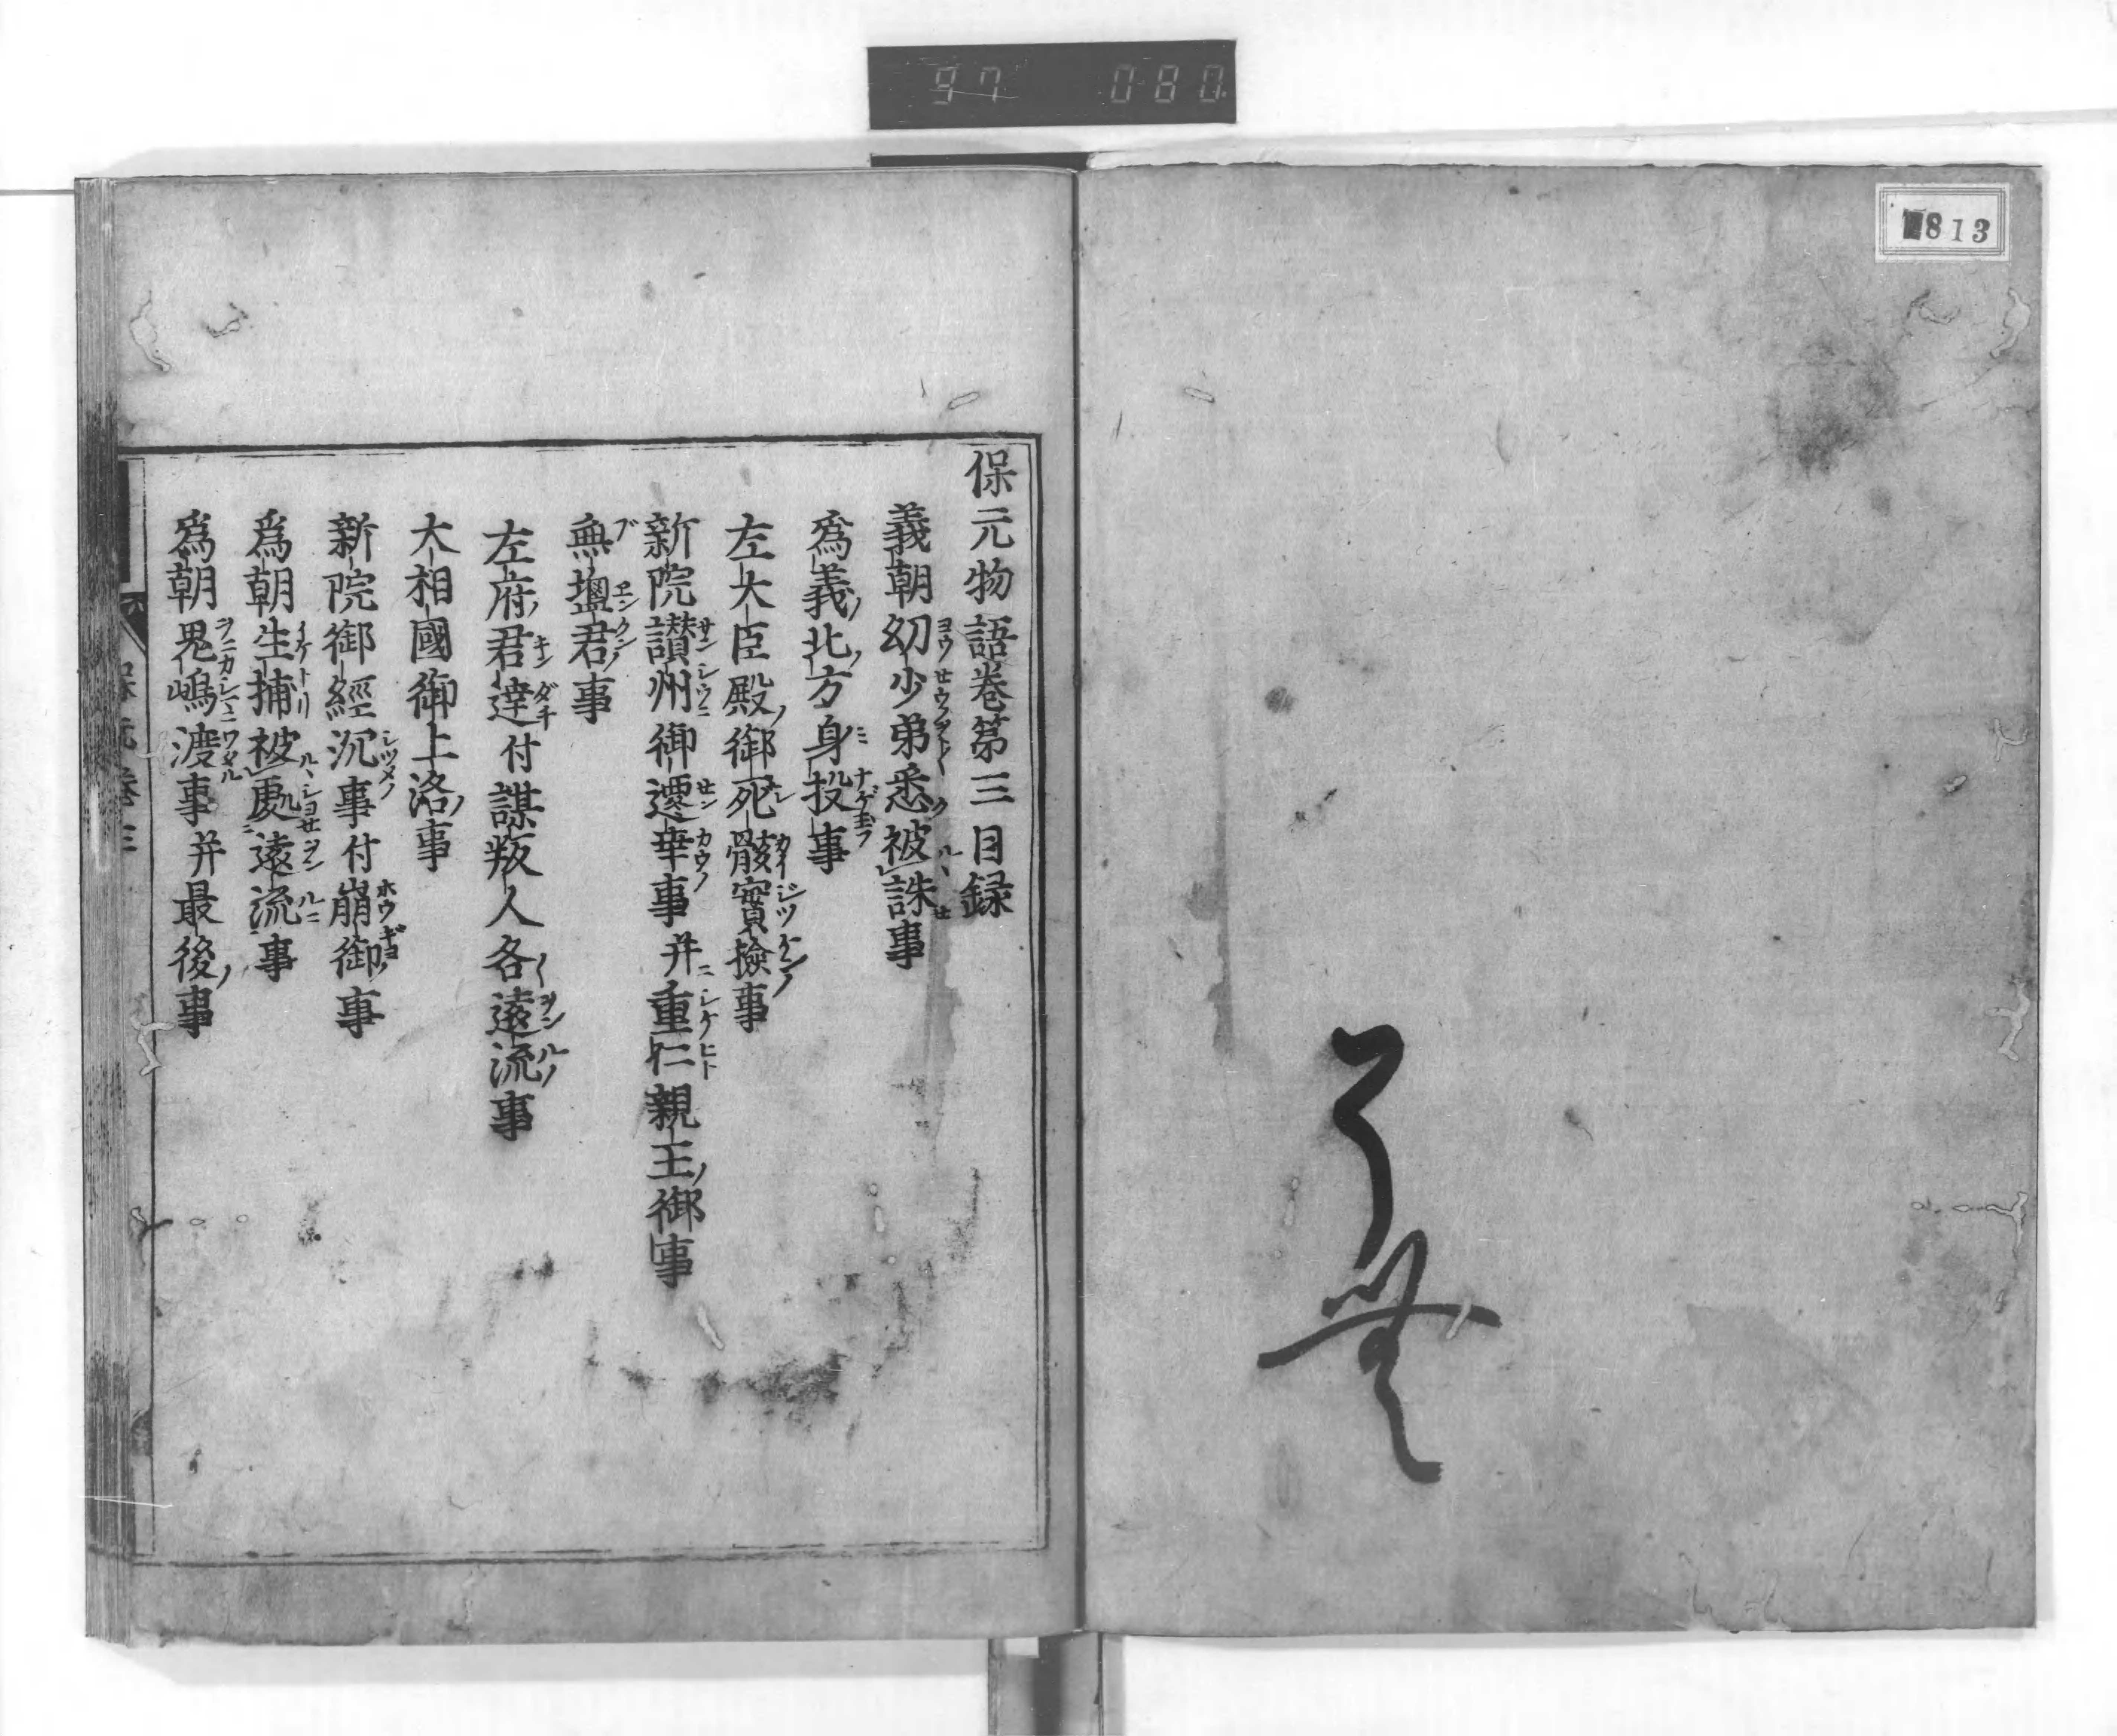 97 080
813
保元物語卷第三目録
義朝幼少弟悉被誅事
為義北方身投事
左大臣殿御死骸實撿事
新院讃州御遷幸事并重仁親王御事
無塩君事
左府君達付謀叛人各遠流事
大相國御上洛事
新院御經沉事付崩御事
為朝生捕被處遠流事
為朝鬼嶋渡事并最後事